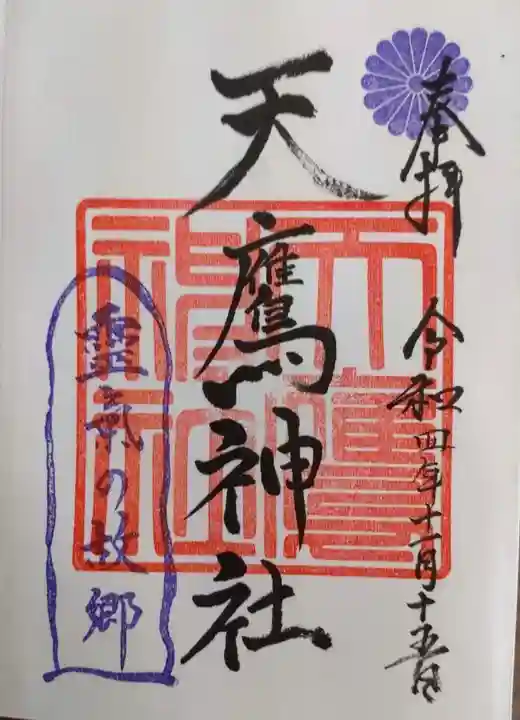 奉拝
令和四年十一月十五日
天鷹神社
天鷹神社
靈氣の故郷